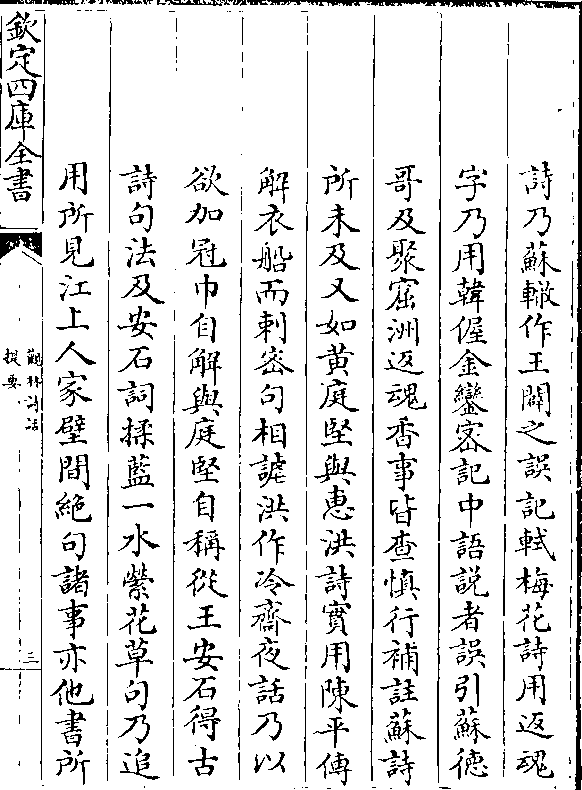 詩乃蘇轍作王闢之誤記軾梅花詩用返魂
字乃用韓偓金鑾密記中語説者誤引蘇徳
哥及聚窟洲返魂香事皆查慎行補註蘇詩
所未及又如黄庭堅與惠洪詩實用陳平傳
解衣船而刺密句相謔洪作冷齋夜話乃以
欲加冠巾自解與庭堅自稱從王安石得古
詩句法及安石詞揉藍一水縈花草句乃追
用所見江上人家壁間絶句諸事亦他書所
欽定四庫全書
觀林詩話
提要
三